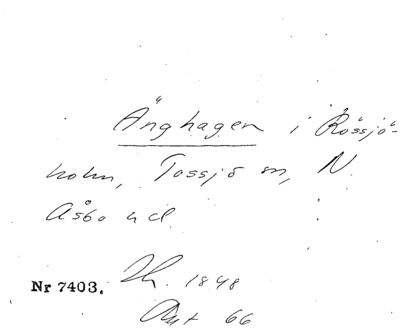 Änghagen i Rössjö-
holm, Tossjö sn, N.
Åsbo hd.
Nr 7403. 1848
Ant 66